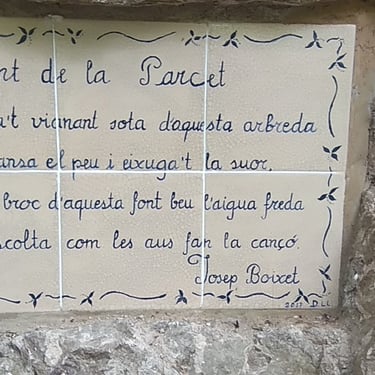 nt de la Parcet
a't vianant sota d'aquesta arbreda
ansa el peu i eixuga't la suor,
broc d'aquesta font beu l'aigua freda
scolta com les aus fan la cançó.
Josep Boixet
2017 D.LL